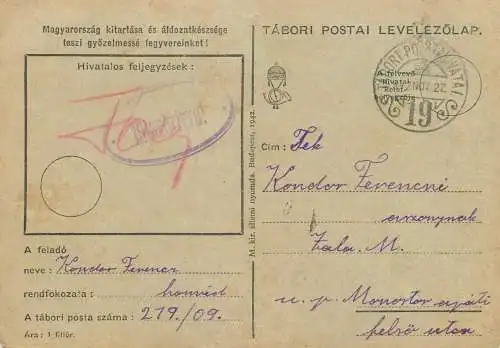 Magyarország kitartása és áldozatkészsége
teszi győzelmessé fegyvereinket!
Hivatalos feljegyzések :
A feladó
neve : Kondor Ferencz
rendfokozata : honvéd
A tábori posta száma : 219./09.
Ára : 1 fillér.
M. kir. állami nyomda. Budapest, 1942.
TÁBORI POSTAI LEVELEZŐLAP.
A felvevő
hivatal
kelet-
TÁBORI POSTAHIVATAL
19
Cím : Tek
Kondor Ferencné
asszonynak
Zala. M.
u. p. Monostor
felső utca